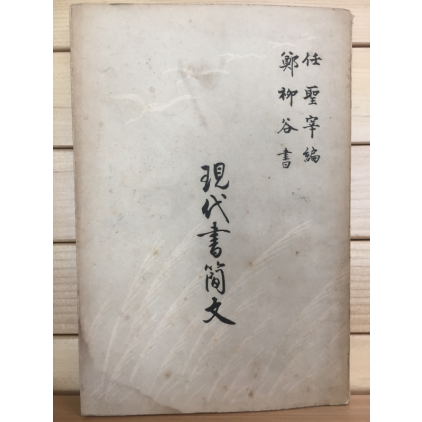 任聖宰編
鄭柳谷書
現代書简文